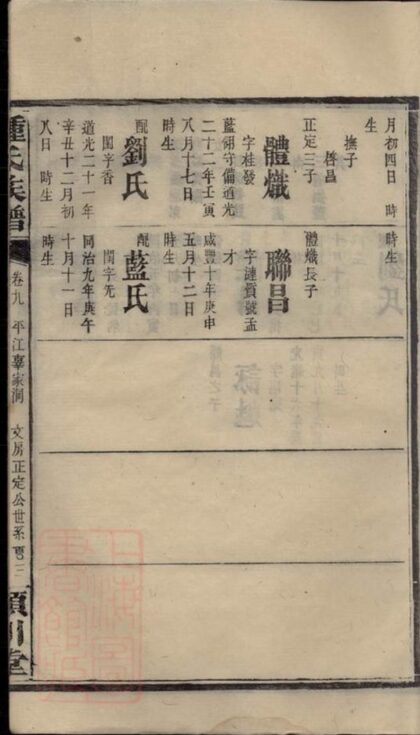 月初四日 時
生
撫子
啓昌
正定三子
體熾
字桂發
藍翎守備道光
二十二年壬寅
八月十七日
時生
配
劉氏
閨字香
道光二十一年
辛丑十二月初
八日 時生
體熾長子
聯昌
字漣質號孟
才
咸豐十年庚申
五月十二日
時生
配
藍氏
閨字旡
同治九年庚午
十月十一日
時生
鍾氏族譜
卷九 平江辜家洞 文房正定公世系
潁川堂